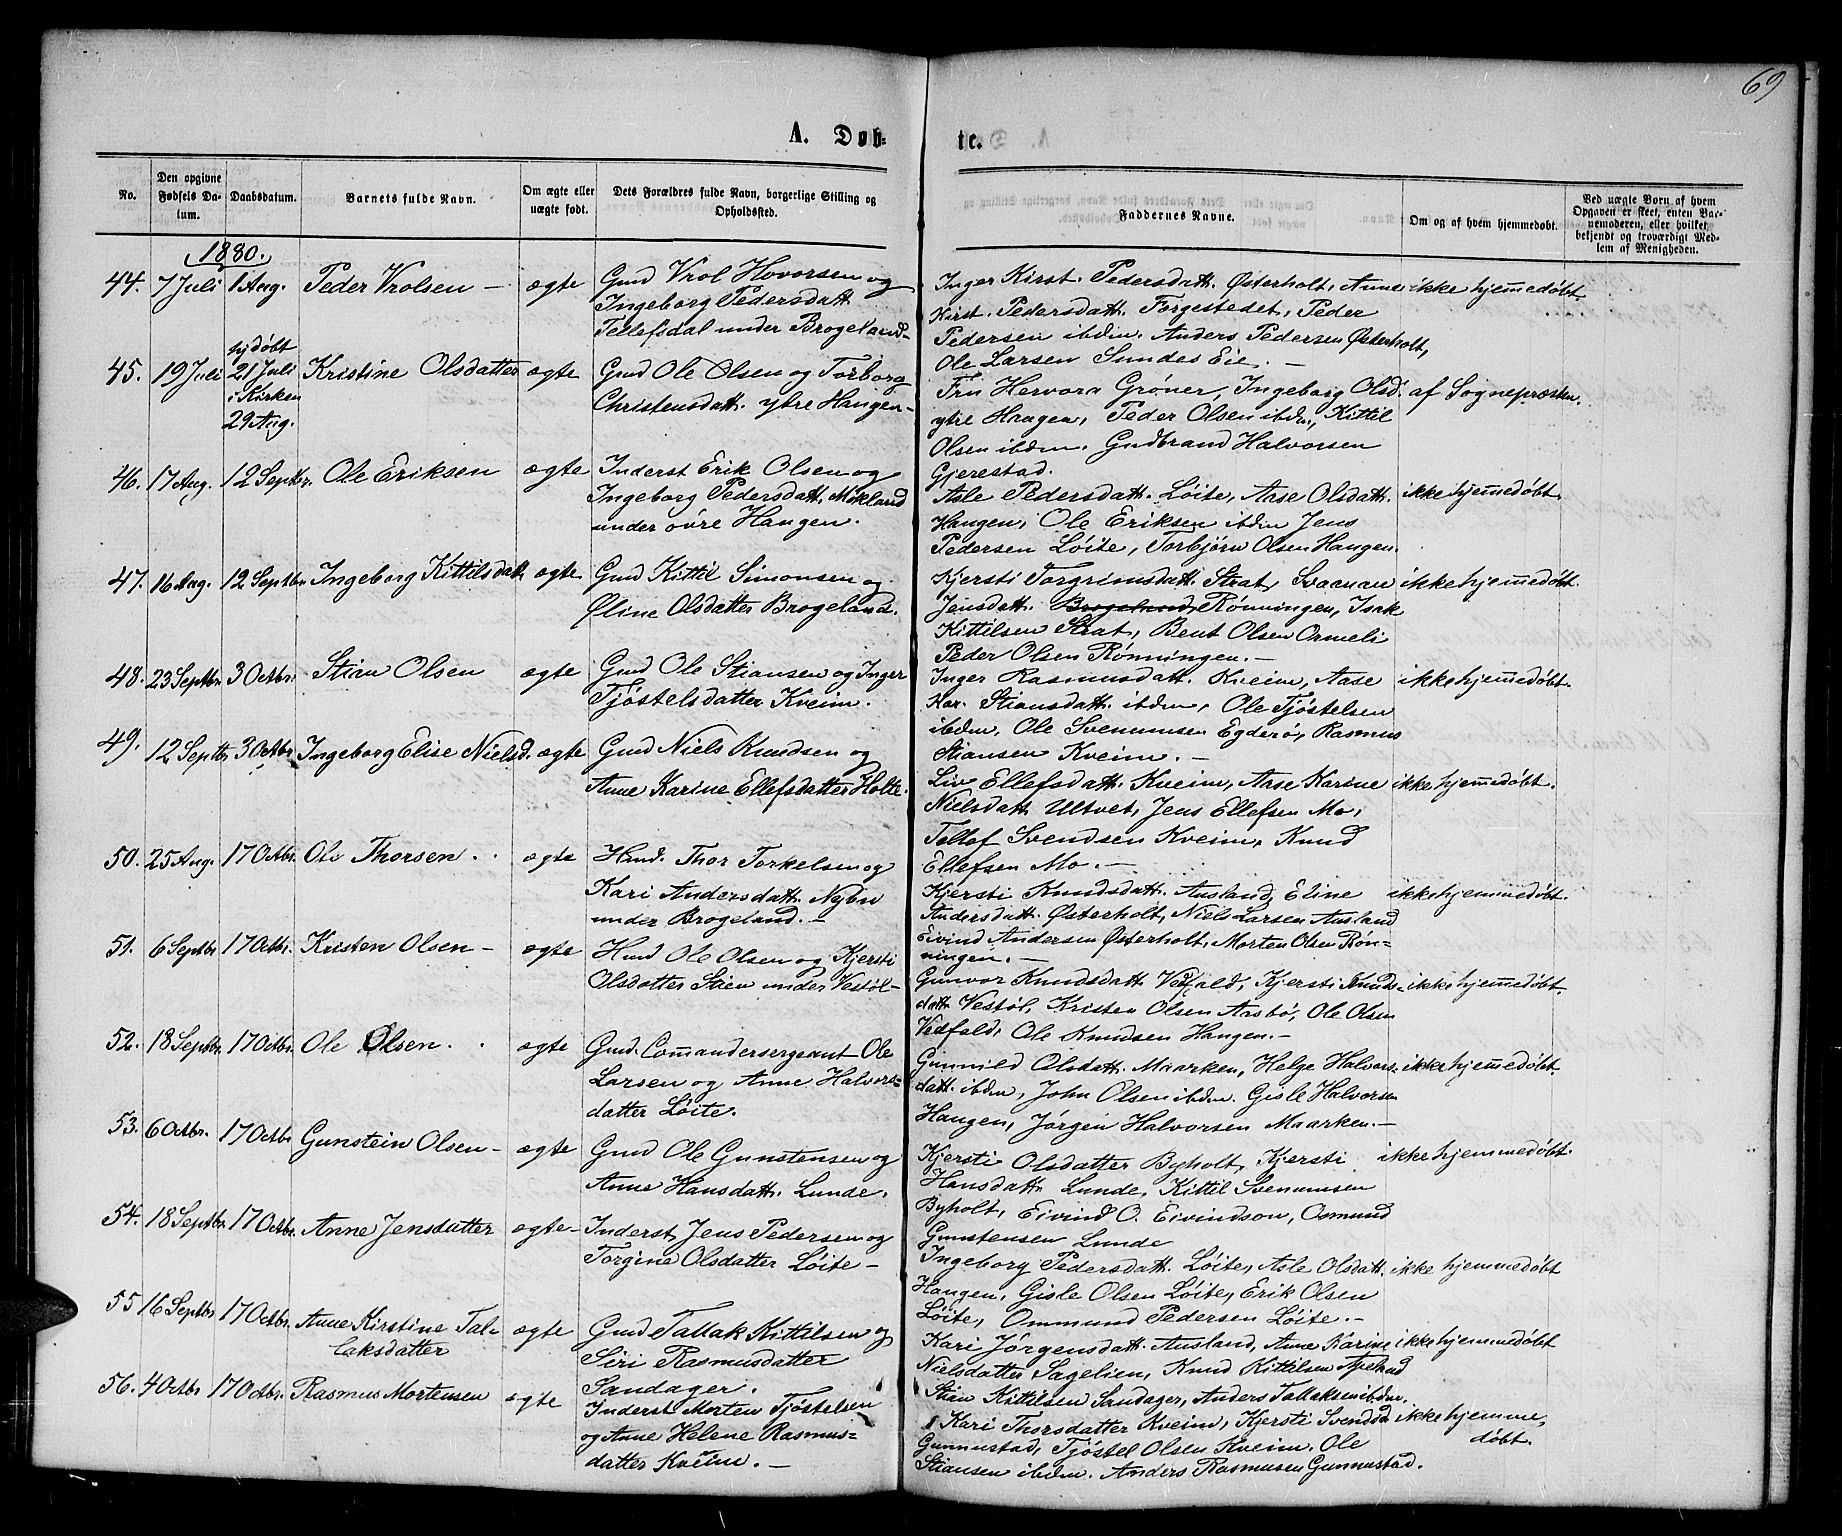 69
A. Døb-
te.
No.
Den opgivne Fødsels Da-tum.
Daabsdatum.
Barnets fulde Navn.
Om ægte eller uægte født.
Dets Forældres fulde Navn, borgerlige Stilling og Opholdsted.
Faddernes Navne.
Om og af hvem hjemmedøbt.
Ved uægte Børn af hvem Opgaven er skeet, enten Bar-nemoderen, eller hvilket bekjendt og troværdigt Med-lem af Menigheden.
1880.
44. 7 Juli 1 Aug. Peder Vrolsen - ægte
Gmd Vrol Hovorsen og
Ingeborg Pedersdatt.
Tellefsdal under Brogeland-
Inger Kirst. Pedersdatt. Østerholt, Anne
Kirst. Pedersdatt. Forgestedet, Peder
Pedersen ibdm. Anders Pedersen Østerholt,
Ole Larsen Sundes Eie. -
ikke hjemmedøbt.
45. 19 Juli
hjdøbt
21 Juli
i Kirken
29 Aug.
Kristine Olsdatter ægte
Gmd Ole Olsen og Torborg
Christensdatt. ytre Hangen-
Fru Hervora Grøner, Ingeborg Olsd.
ytre Haagen, Peder Olsen ibdm, Kittil
Olsen ibdm. Gudbrand Halvorsen
Gjerestad.
af Sognepræsten.
46. 17 Aug. 12 Septbr. Ole Eriksen ægte
Inderst Erik Olsen og
Ingeborg Pedersdatt. Mokland
under øvre Hangen.
Asle Pedersdatt. Løite, Aase Olsdatt.
Hangen, Ole Eriksen ibdm Jens
Pedersen Løite, Torbjørn Olsen Hangen.
ikke hjemmedøbt.
47. 16 Aug. 12 Septbr. Ingeborg Kittilsdatt. ægte
Gmd Kittil Simonsen og
Oline Olsdatter Brogeland.
Kjersti Torgrimsdatt. Strat,
Jensdatt. Brogeland, Rønningen, Isak
Kittilsen Strat, Bent Olsen Ormeli
Peder Olsen Rønningen. -
ikke hjemmedøbt.
48. 23 Septbr. 3 Octbr. Stian Olsen ægte
Gmd Ole Stiansen og Inger
Tjøstelsdatter Kveim.
Inger Rasmusdatt. Kveim, Aase
Kar. Stiansdatt. ibdm, Ole Tjøstelsen
ibdm, Ole Svenumsen Egderø, Rasmus
Stiansen Kveim. -
ikke hjemmedøbt.
49. 12 Septbr. 3 Octbr. Ingeborg Elise Nielsd. ægte
Gmd Niels Knudsen og
Anne Karine Ellefsdatter Holte.
Liv Ellefsdatt. Kveim, Aase Karine
Nielsdatt. Ultvet, Jens Ellefsen Mo,
Tellef Svendsen Kveim, Knud
Ellefsen Mo. -
ikke hjemmedøbt.
50. 25 Aug. 17 Octbr. Ole Thorsen. ægte
Hmd. Thor Torkelsen og
Kari Andersdatt. Nybu
under Brogeland. -
Kjersti Knudsdatt. Ausland, Eline
Andersdatt. Østerholt, Niels Larsen Ausland
Eivind Andersen Østerholt, Morten Olsen Røn-
ningen. -
ikke hjemmedøbt.
51. 6 Septbr. 17 Octbr. Kristen Olsen - ægte
Hmd Ole Olsen og Kjersti
Olsdatter Stien under Vestøl-
Gunvor Knudsdatt. Vedfald, Kjersti Knuds-
datt. Vestøl, Kristen Olsen Aasbø, Ole Olsen
Vedfald, Ole Knudsen Hangen. -
ikke hjemmedøbt.
52. 18 Septbr. 17 Octbr. Ole Olsen. ægte
Gmd. Commandersergeant Ole
Larsen og Anne Halvors-
datter Løite.
Gunnild Olsdatt. Maarken, Helge Halvors-
datt. ibdm, John Olsen ibdm. Gisle Halvorsen
Hangen, Jørgen Halvorsen Maarken. -
ikke hjemmedøbt.
53. 6 Octbr. 17 Octbr. Gunstein Olsen - ægte
Gmd Ole Gunstensen og
Anne Hansdatt. Lunde.
Kjersti Olsdatter Byholt, Kjersti
Hansdatt. Lunde, Kittil Svenumsen
Byholt, Eivind O. Eivindson, Osmund
Gunstensen Lunde
ikke hjemmedøbt.
54. 18 Septbr. 17 Octbr. Anne Jensdatter ægte-
Inderst Jens Pedersen og
Torgine Olsdatter Løite -
Ingeborg Pedersdatt. Løite, Asle Olsdatt.
Hangen, Gisle Olsen Løite, Erik Olsen
Løite, Ommund Pedersen Løite. -
ikke hjemmedøbt
55 16 Septbr. 17 Octbr. Anne Kirstine Tal-
laksdatter
ægte
Gmd Tallak Kittilsen og
Siri Rasmusdatter
Sandager.
Kari Jørgensdatt. Ausland, Anne Karine
Nielsdatter Sagelien, Knud Kittilsen
Stien Kittilsen Sandager, Anders Tallaksen ibdm.
ikke hjemmedøbt
56. 4 Octbr 17 Octbr. Rasmus Mortensen ægte
Inderst Morten Tjøstelsen
og Anne Helene Rasmus-
datter Kveim. -
Kari Thorsdatter Kveim, Kjersti Svendsd
Gunnustad, Tjøstel Olsen Kveim. Ole
Stiansen ibdm. Anders Rasmusen Gunnustad.
ikke hjemme-
døbt.